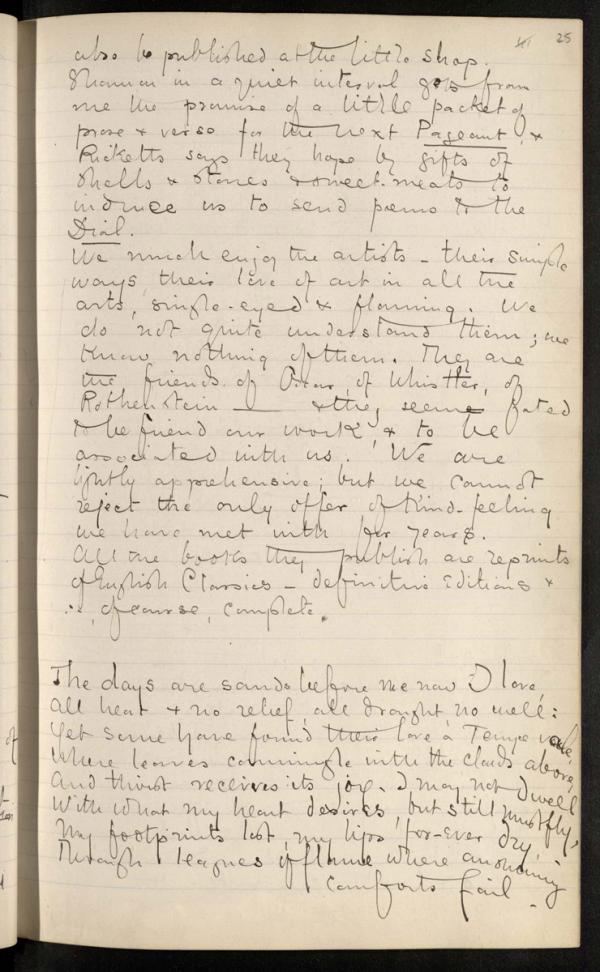 25
also to be published at the little shop.
Shannon in a quiet interval gets from
me the promise of a little packet of
prose & verse for the next Pageant, &
Ricketts says they hope by gifts of
shells & stones & sweet-meats to
induce us to send poems to the
Dial.
We much enjoy the artists – their simple
ways, their love of art in all the
arts, single-eyed & flaming. We
do not quite understand them; we
know nothing of them. They are
the friends of Oscar, of Whistler, of
Rothenstein — & they seem fated
to be friend our work, & to be
associated with us. We are
lightly apprehensive; but we cannot
reject the only offer of kind-feeling
we have met with for years.
All the books they publish are reprints
of English Classics – definitive editions &
, of course, complete.
The days are sands before me now I love,
All heat & no relief, all drought, no well:
Yet some have found their love a Tempe vale,
Where leaves commingle with the clouds above,
And thirst receives its joy. I may not dwell
With what my heart desires, but still must fly,
My footprints lost, my lips for-ever dry,
Through leagues of flame where
comforts fail.